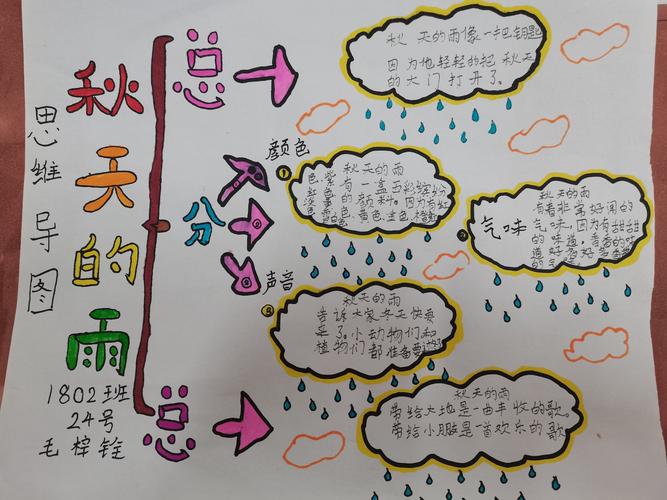 思维导图
秋天的雨
1802班
24号
毛梓铨
总
分
总
秋天的雨像一把钥匙
因为他轻轻的把秋天
的大门打开了。
颜色
①
秋天的雨
有一盒五彩缤纷
的颜料。因为有红
色、紫
黄色、金色、橙
气味
秋天的雨
有着非常好闻的
气味,因为有甜甜
的味道,香香的味
道好多好多
声音
秋天的雨
告诉大家冬天快要
来了。小动物们和
植物们都准备要过冬
秋天的雨
带给大地是一曲丰收的歌。
带给小朋是一首欢乐的歌